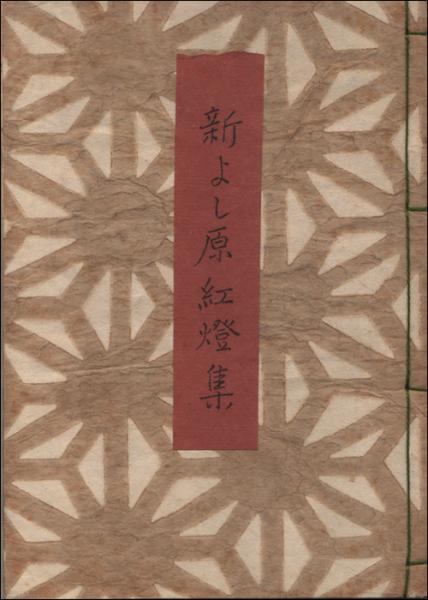 新よし原紅燈集